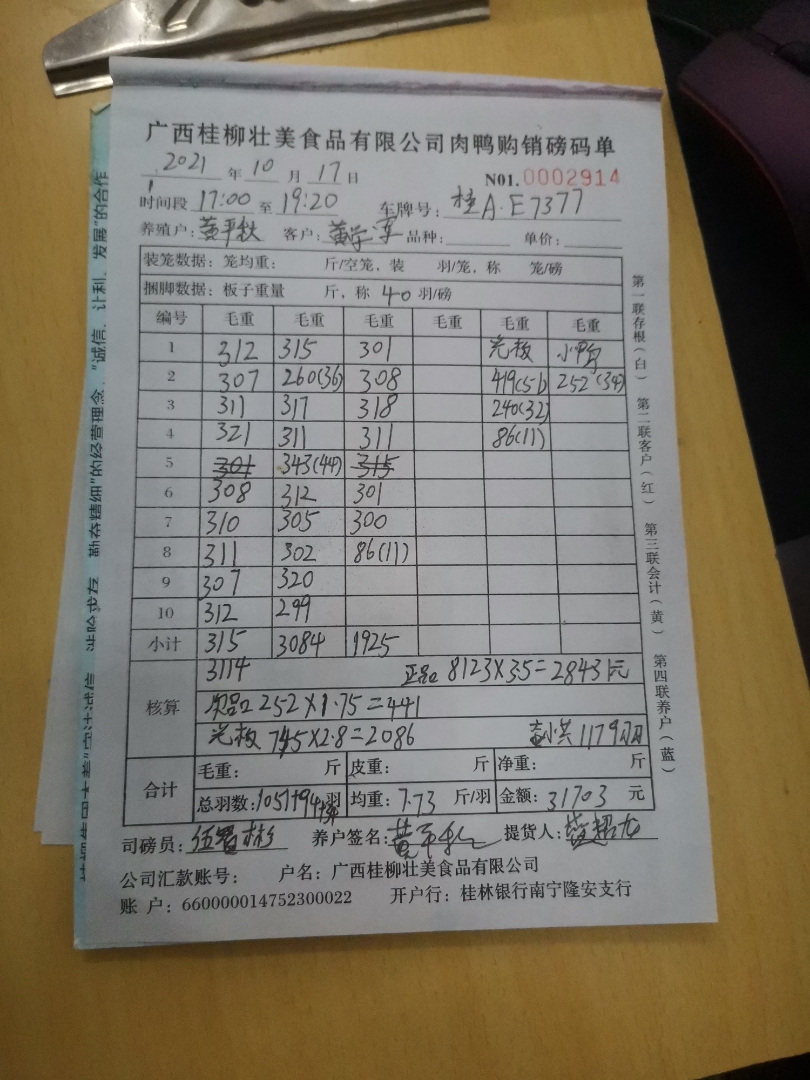 广西桂柳壮美食品有限公司肉鸭购销磅码单
2021 年 10 月 17 日 NO1. 0002914
时间段 17:00 至 19:20 车牌号: 桂A·E7377
养殖户: 黄平秋 客户: 品种: 单价:
装笼数据: 笼均重: 斤/空笼, 装 羽/笼, 称 笼/磅
捆脚数据: 板子重量 斤, 称 40 羽/磅
编号 毛重 毛重 毛重 毛重 毛重 毛重
1 312 315 301 光板 小鸭
2 307 260(36) 308 419(51) 252(34)
3 311 317 318 240(32)
4 321 311 311 86(11)
5 301 343(44) 315
6 308 312 301
7 310 305 300
8 311 302 86(11)
9 307 320
10 312 299
小计 315 3084 1925
3114 正品 8123×3.5=28431元
核算 次品 252×1.75=441
光板 745×2.8=2086 共1179羽
合计 毛重: 斤 皮重: 斤 净重: 斤
总羽数: 1051+94+ 羽 均重: 7.73 斤/羽 金额: 31703 元
司磅员: 养户签名: 提货人:
公司汇款账号: 户名: 广西桂柳壮美食品有限公司
账 户: 660000014752300022 开户行: 桂林银行南宁隆安支行
第一联存根(白) 第二联客户(红) 第三联会计(黄) 第四联养户(蓝)
的经营理念、"诚信、计利、发展"的合作